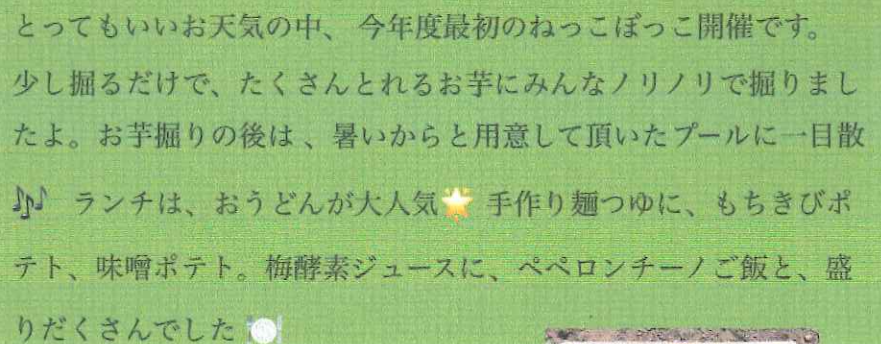 とってもいいお天気の中、 今年度最初のねっこぼっこ開催です。
少し掘るだけで、たくさんとれるお芋にみんなノリノリで掘りまし
たよ。お芋掘りの後は 、暑いからと用意して頂いたプールに一目散
🎶 ランチは、おうどんが大人気🌟 手作り麺つゆに、もちきびポ
テト、味噌ポテト。梅酵素ジュースに、ペペロンチーノご飯と、盛
りだくさんでした 🍽️